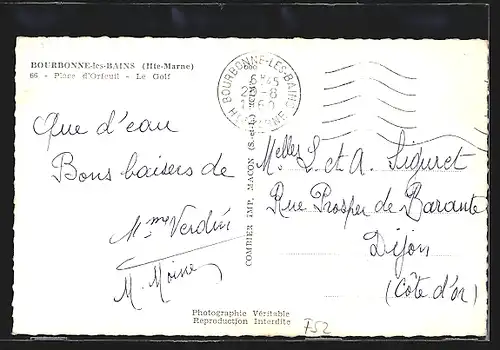 BOURBONNE-les-BAINS (Hte-Marne)
66 - Place d'Orfeuil - Le Golf
BOURBONNE-LES-BAINS
6 H45
23-8
1960
Hte MARNE
Que d'eau
Bons baisers de
Mme Verdin
M Moine
COMBIER IMP. MACON (S.-et-L.)
Melles L. et A. Siguret
Rue Prosper de Barante
Dijon
(Côte d'or)
Photographie Véritable
Reproduction Interdite
F52